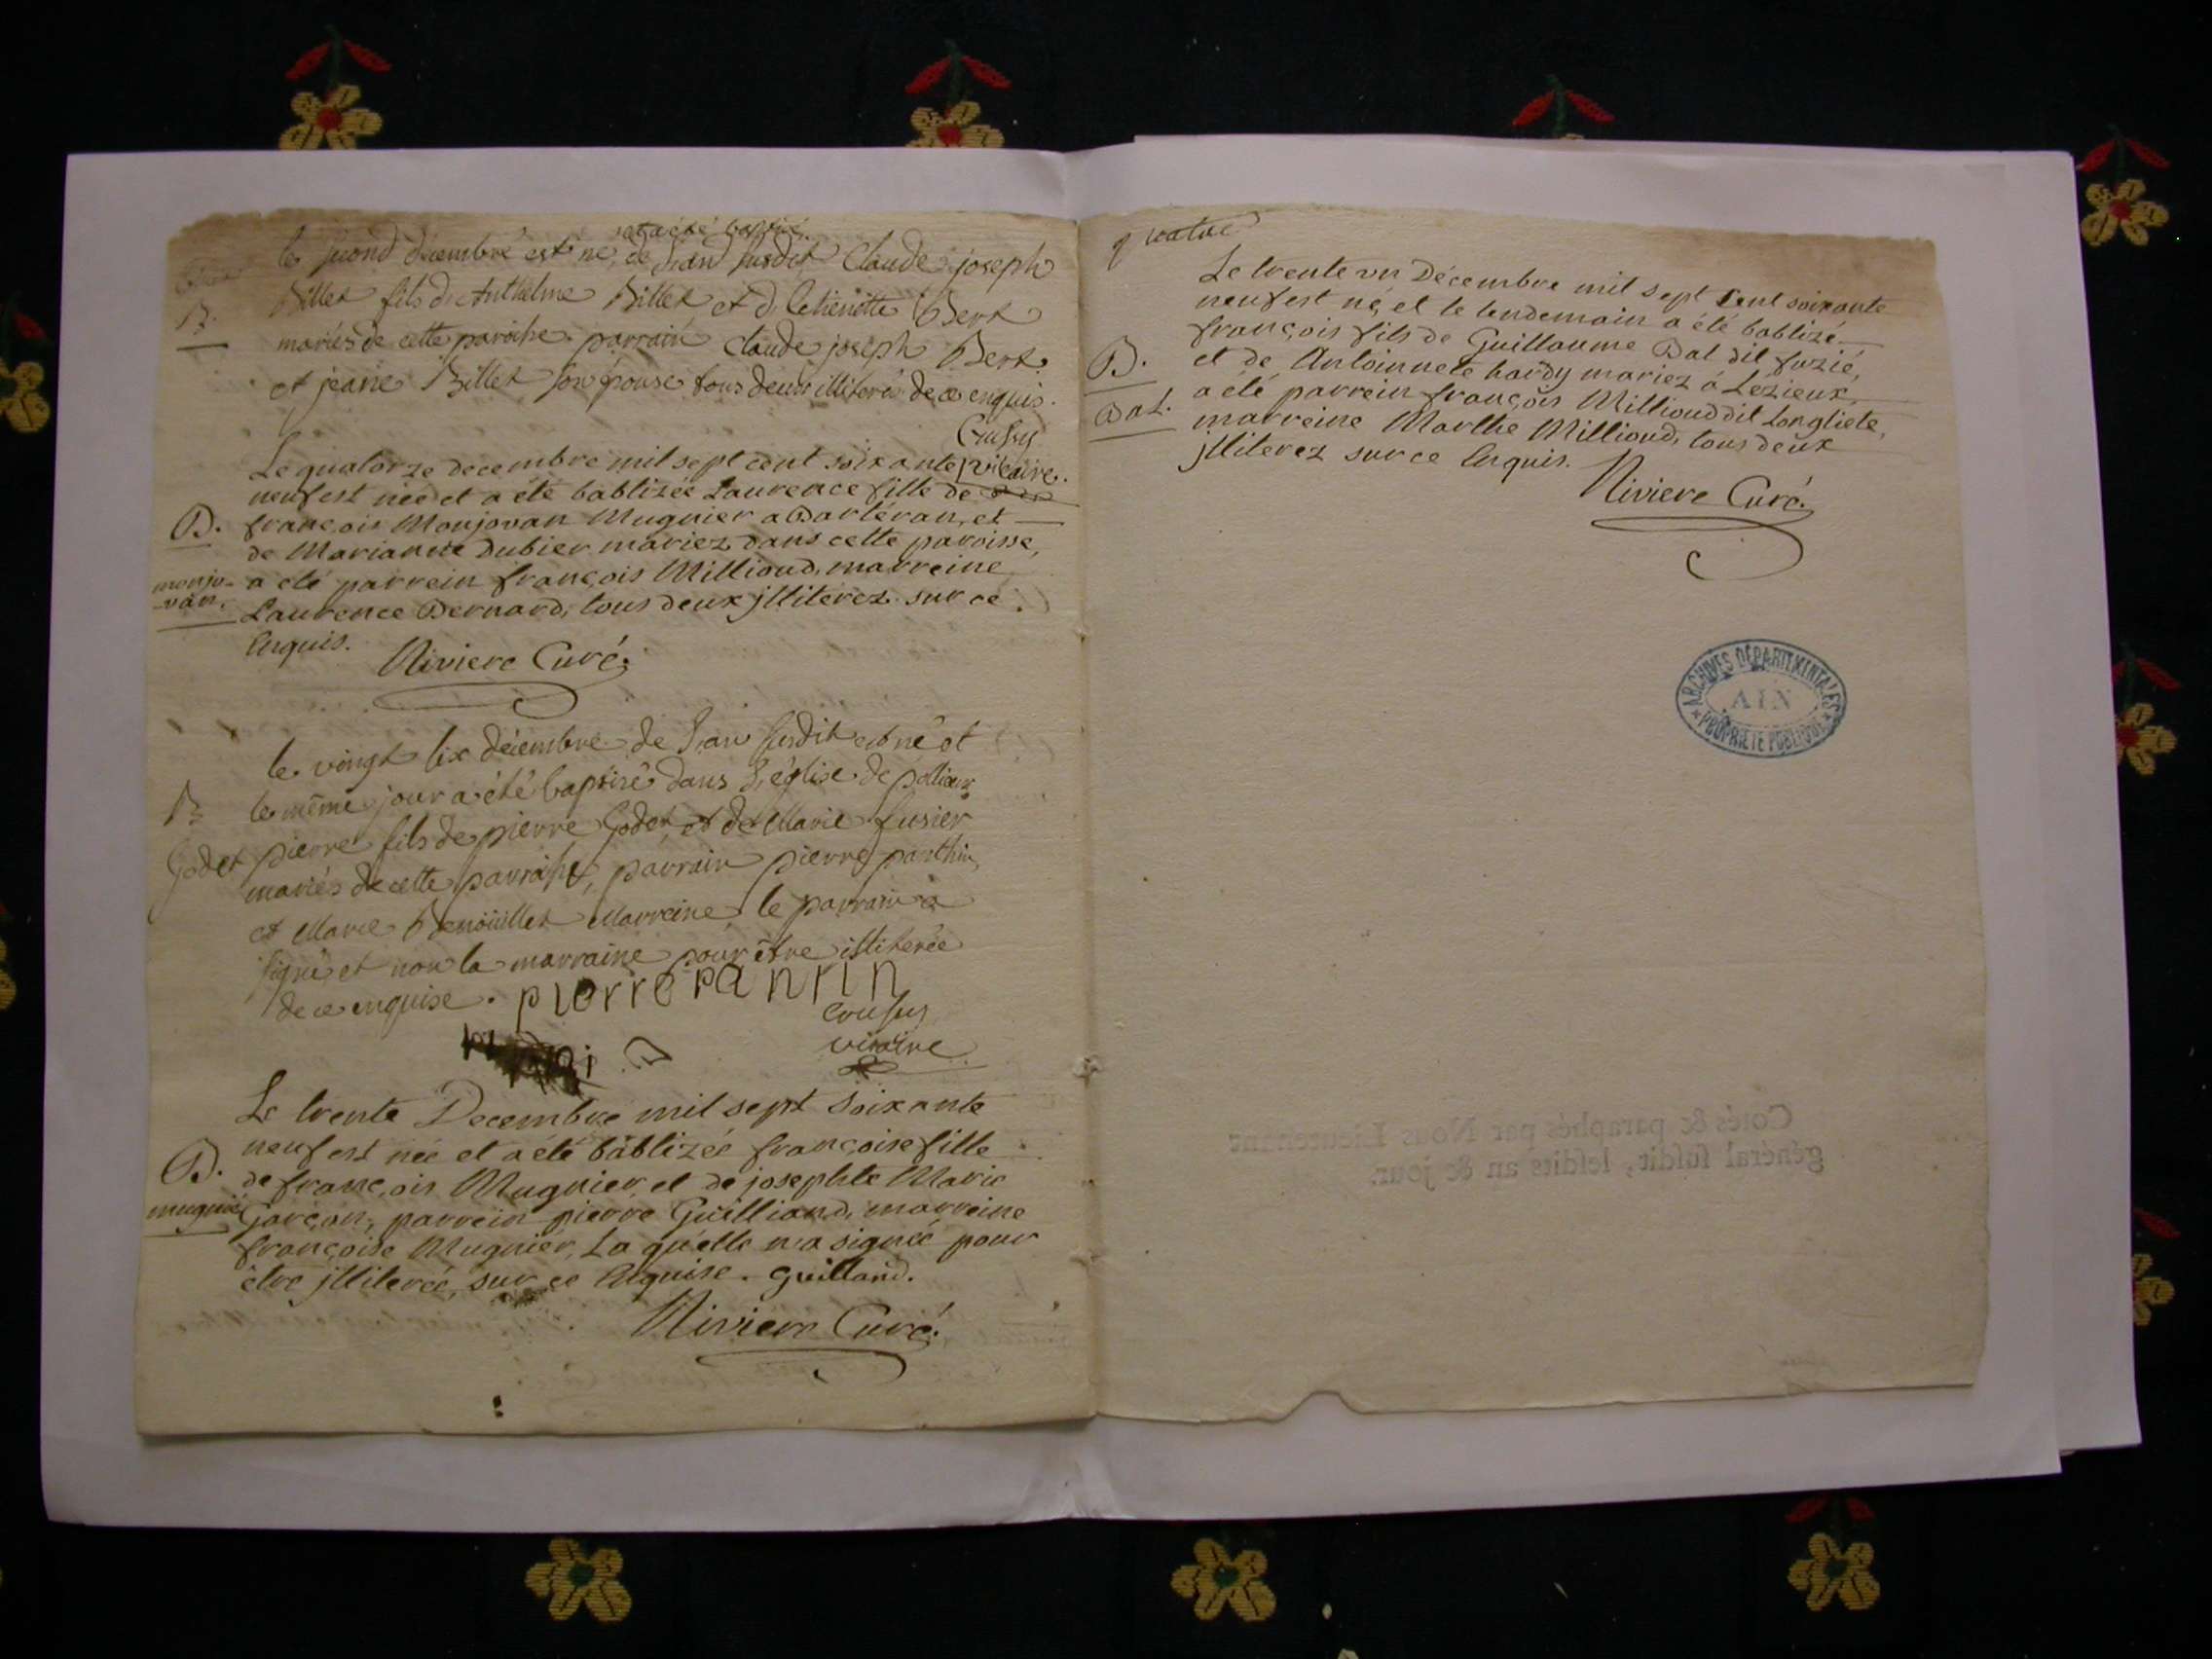 et a été baptisé
le second décembre est né, de l'an susdit Claude joseph
Billet fils d'Anthelme Billet et d'Etienette Bert
B.
mariés de cette paroisse. parrain Claude joseph Bert.
et jeane Billet son épouse tous deux illiterés de ce enquis.
vicaire.
Le quatorze decembre mil sept cent soixante
neuf est née et a été babtizée Laurence fille de
B. françois Monjovan Mugnier a Bartéran, et
de Marianne Dubier mariez dans cette paroisse,
monjo-
-van.
a été parrein françois Millioud, marreine
Laurence Bernard, tous deux jlliterez sur ce
Enquis. Riviere Curé.
le vingt six décembre de l'an susdit est né et
B le même jour a été baptisé dans l'église de pollieux
Godet pierre fils de pierre Godet et de Marie fusier
mariés de cette parroisse, parrain pierre panthin,
et Marie Benoüillet Marreine, le parrain a
signé et non la marraine pour être illiterée
de ce enquise. pierre panrin
vicaire
Le trente Decembre mil sept soixante
neuf est née et a été babtizée françoise fille
B. de françois Mugnier et de josephte Marie
mugnié Garçon, parrein pierre Guilliand, marreine
françoise Mugnier, La quelle n'a signée pour
être jlliterée, sur ce Enquise. guilland.
Riviere Curé.
quatre
Le trente un Décembre mil sept Cent soixante
neuf est né, et le lendemain a été babtizé
françois fils de Guillaume Bal dit fuzié,
B. et de Antoinnete hardy mariez á Lezieux,
Bal. a été parrein françois Millioud dit Longliete,
marreine Marthe Millioud, tous deux
jlliterez sur ce Enquis.
Riviere Curé.
ARCHIVES DÉPARTEMENTALES
AIN
PROPRIÉTÉ PUBLIQUE
Cotés & paraphés par Nous Lieutenant
général susdit, lesdits an & jour.